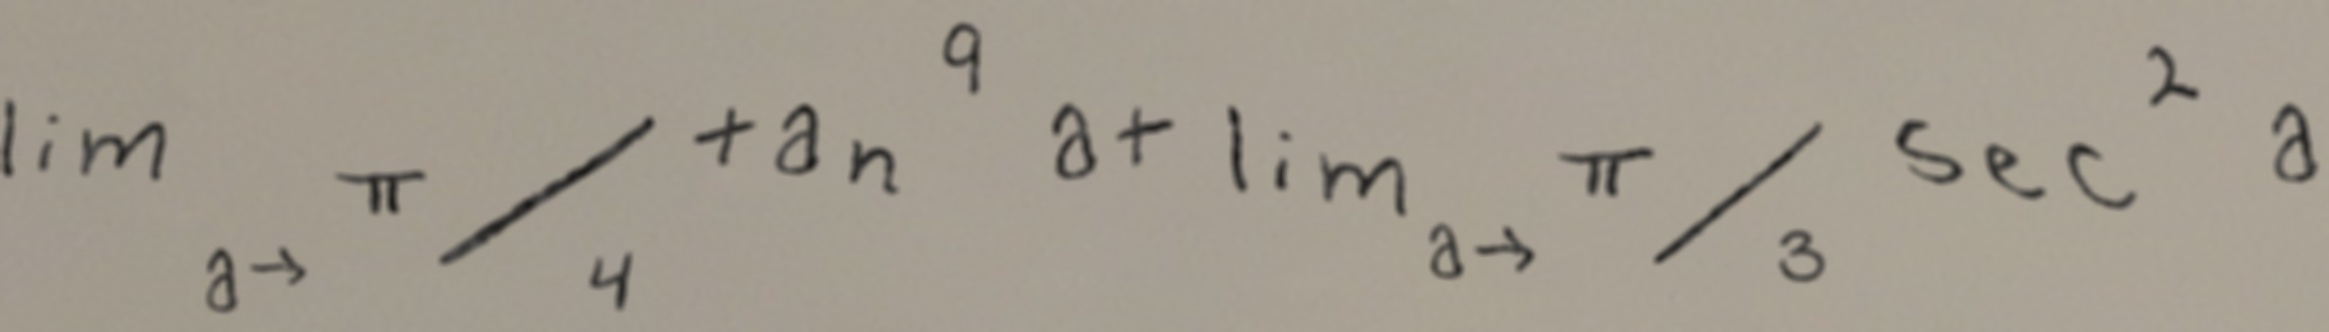 lim a→ π/4 tan^9 a + lim a→ π/3 sec^2 a